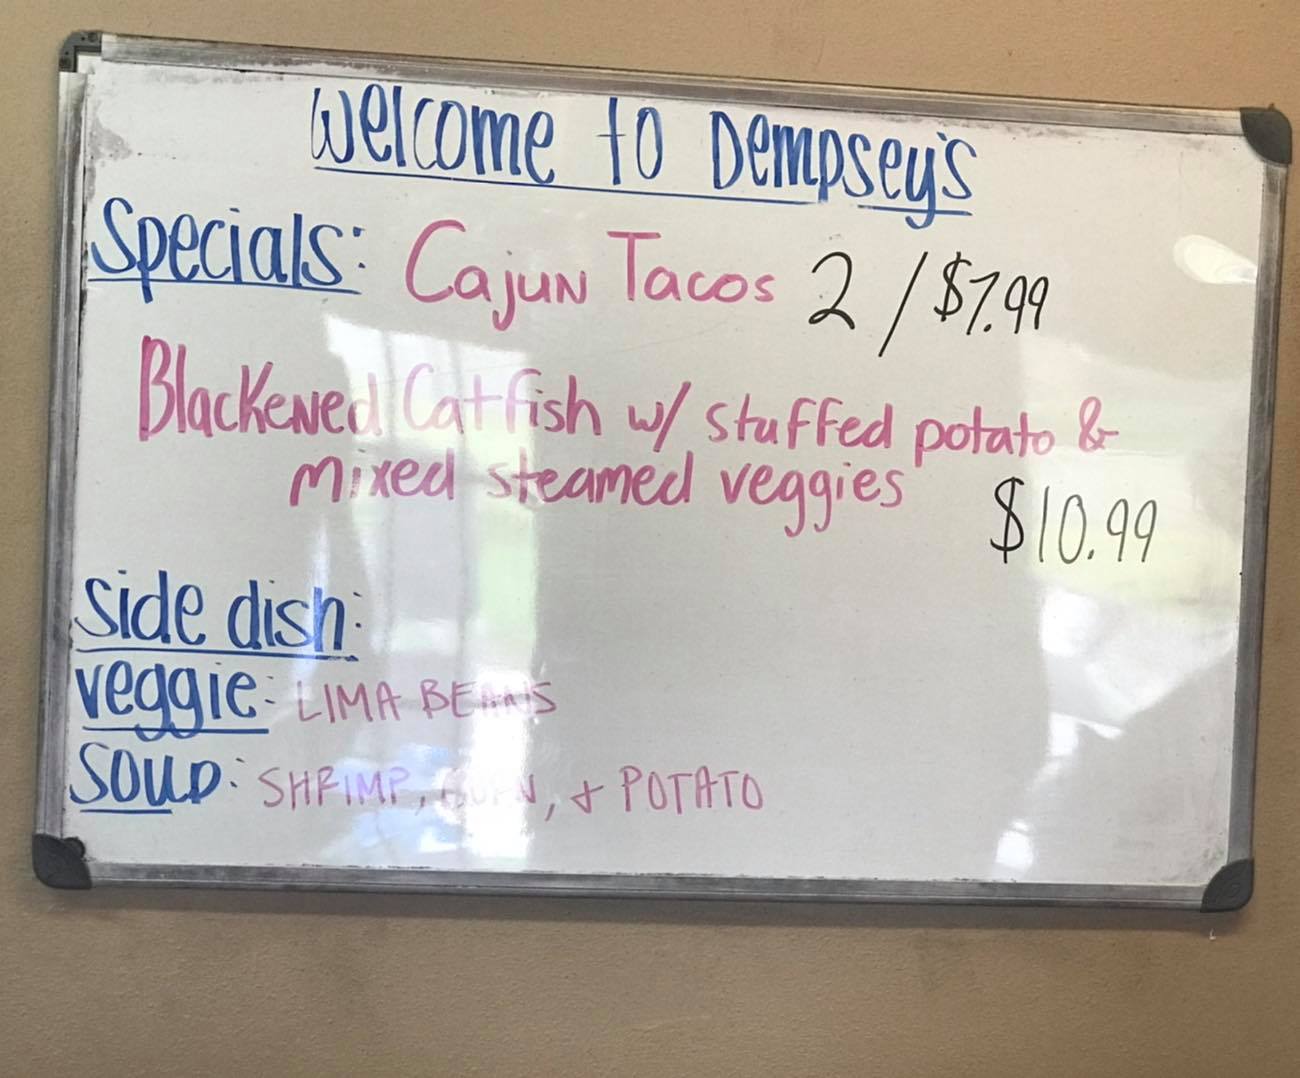 Welcome to Dempsey's
Specials: Cajun Tacos 2 / $7.99
Blackened Catfish w/ stuffed potato &
mixed steamed veggies $10.99
side dish:
veggie: LIMA BEANS
SOUP: SHRIMP, , + POTATO